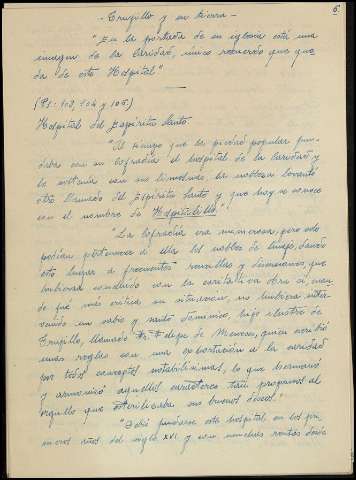 6.
- Trujillo y su tierra -
"En la portada de su iglesia está una
imagen de la Caridad, único recuerdo que que
da de este Hospital"
(Ps. 103, 104 y 105)
Hospital del Espíritu Santo.
"Al tiempo que la piedad popular fun
daba con su cofradía el hospital de la Caridad y
lo sostenía con sus limosnas, la nobleza levantó
otro llamado del Espíritu Santo y que hoy se conoce
con el nombre de Hospitalillo."
"La cofradía era numerosa, pero solo
podían pertenecer a ella los nobles de linaje, dando
esto lugar a frecuentes rencillas y disensiones, que
hubieran concluido con la caritativa obra si, cuan
do fué más crítica su situación, no hubiera inter
venido un sabio y santo dominico, hijo ilustre de
Trujillo, llamado Fr. Felipe de Meneses, quien escribió
unas reglas con una exhortación a la caridad
por todos conceptos notabilísimas, lo que hermanó
y armonizó aquellos caracteres tan propensos al
orgullo que esterilizaba sus buenos deseos."
"Debió fundarse este hospital en los pri
meros años del siglo XVI y con pingües rentas desde